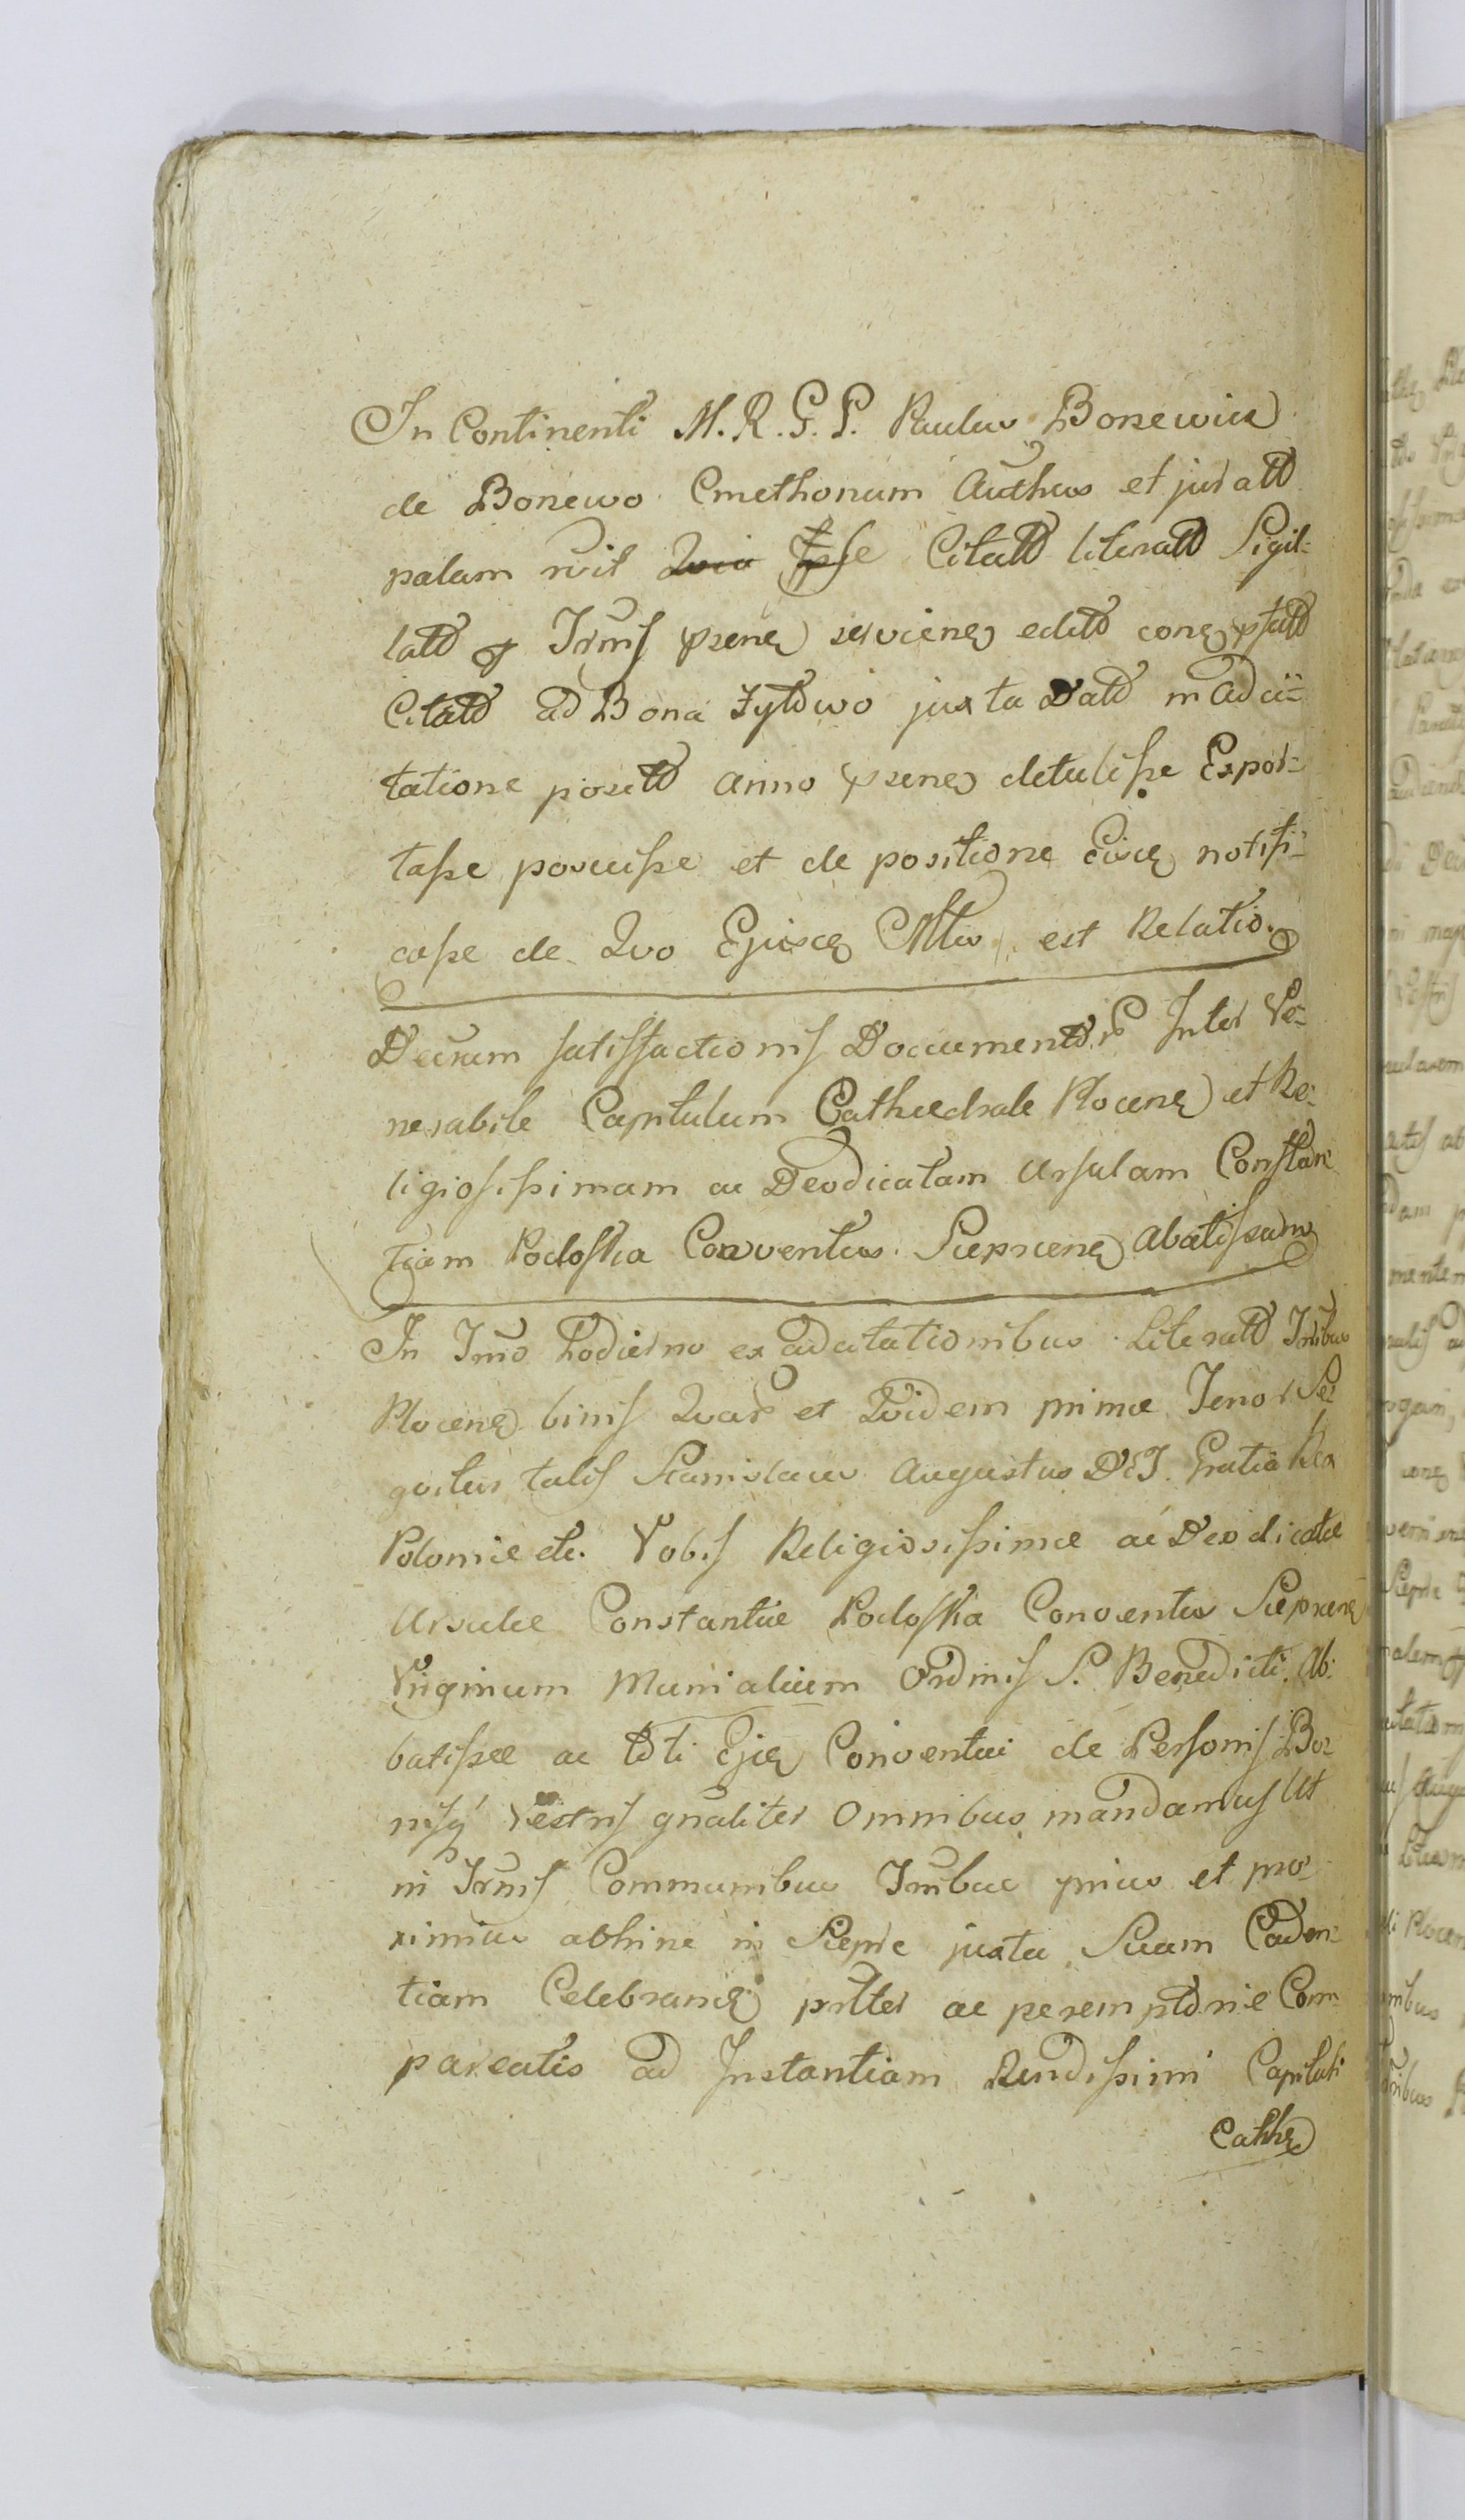 In Continenti M. R. G. P. Paulus Bonewicz
de Bonewo Cmethonum Authus et juratt
palam rvit Qvia Ipse Citatt literatt Sigil:
latt Trmis prsenę servienę editt conę
Citatt ad Bona Zytowo juxta Datt in adci:
tatione positt Anno prsenę detulisse Expor:
tasse posuisse et de positione eiuscę notifi:
casse de Qvo Ejuscę est Relatio.
Decrum satisfactionis Documentor Inter Ve:
nerabile Capitulum Cathedrale Plocenę et Re:
ligiosissimam ac Deodicatam Ursulam Constan:
tiam Podoska Conventus Sieprcenę Abatissam
In Tmo hodierno ex adcitationibus Literatt Tribus
Plocenę binis Qvar et Qvidem prima Tenor Se:
qvitur talis Stanislaus Augustus DEI Gratia Rex
Polonie etc. Vobis Religiosissimæ ac Deodicatæ
Ursulæ Constantiæ Podoska Conventus Sieprcenę
Virginum Monialium Ordinis S. Benedicti Ab:
batissæ ac toti Ejcę Conventui de Personis Bo:
nisq vestris gnaliter Omnibus mandamus Ut
in Trmis Communibus Tribus prius et pro:
ximius abhinc in Sieprc juxta Suam Caden:
tiam Celebrandę prltter ac peremptorie Com:
pareatis ad Instantiam Rendissimi Capituli
Cathę